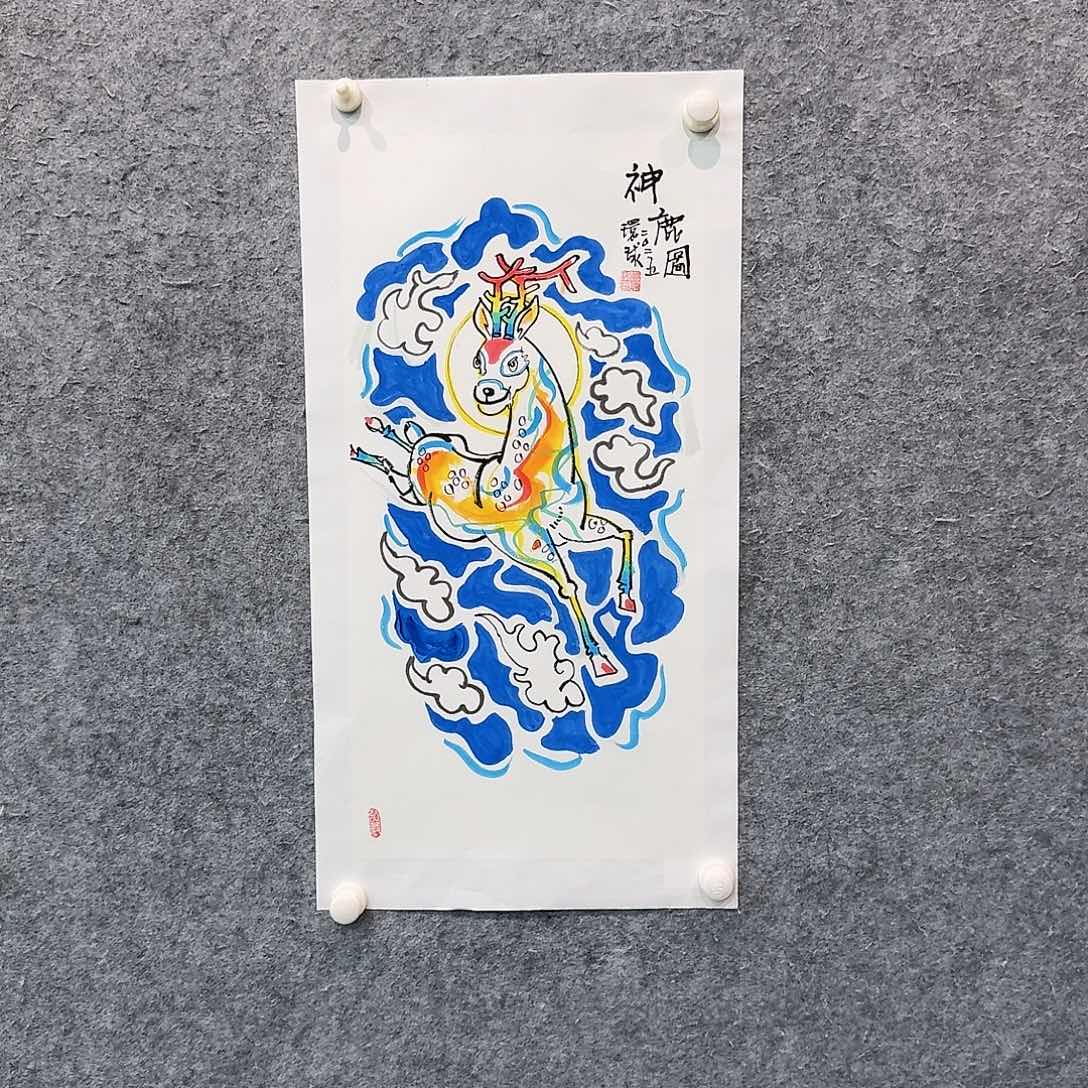 神鹿圖
二〇二五
環球